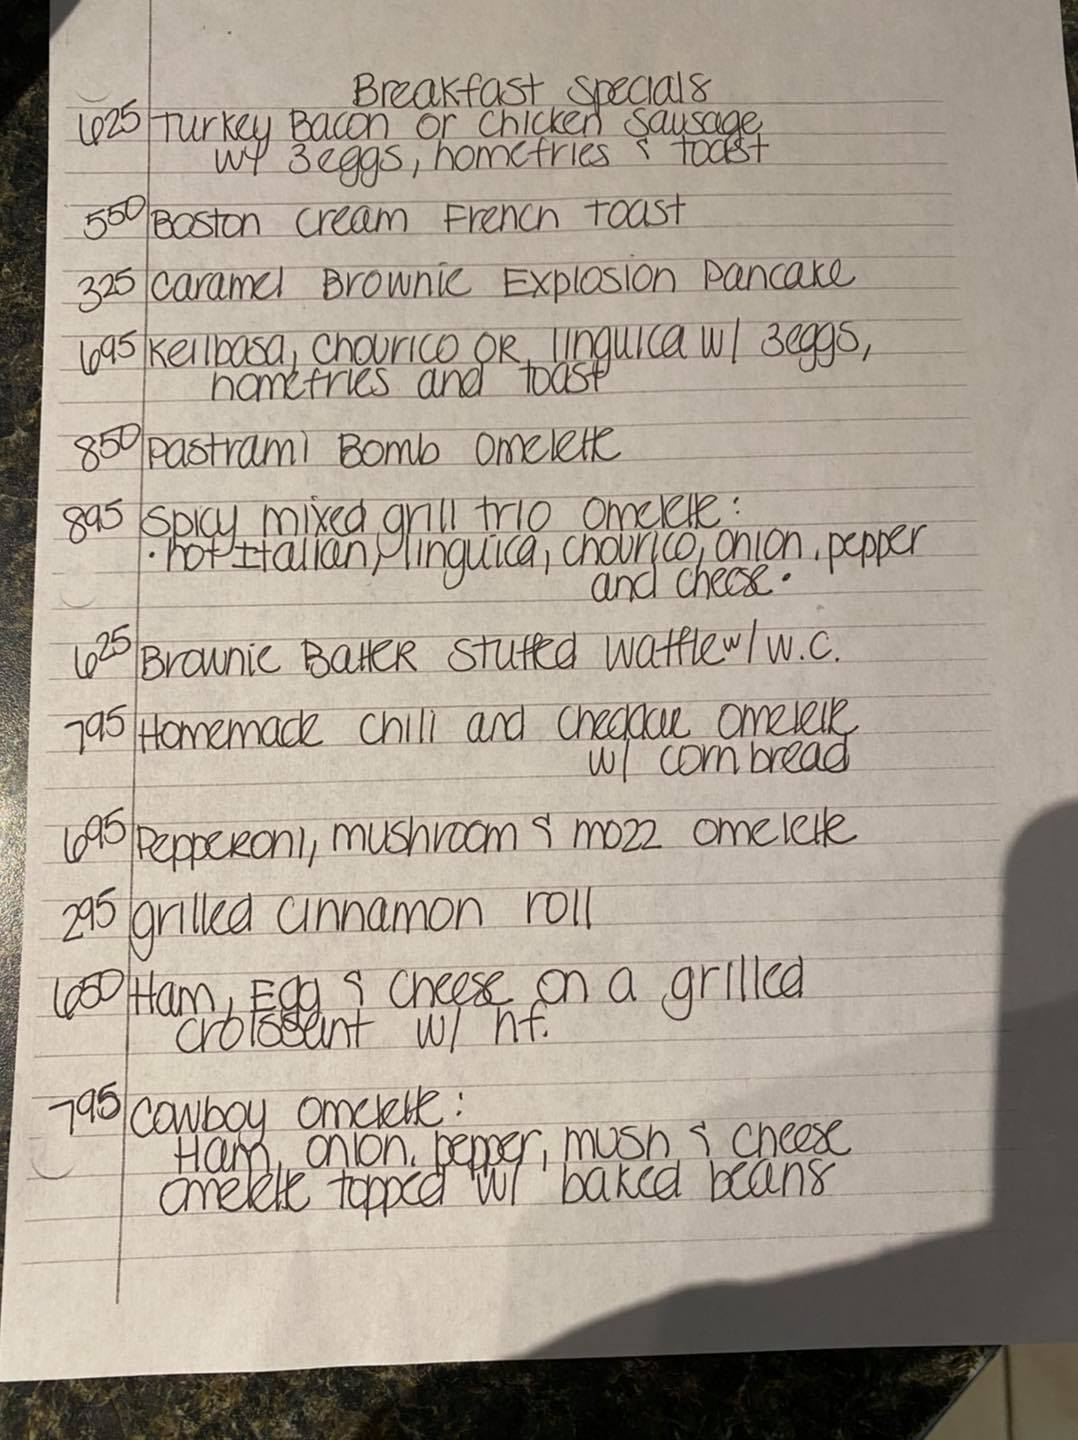 Breakfast Specials
625 Turkey Bacon or Chicken Sausage
w/ 3eggs, homefries & toast
550 Boston Cream French Toast
325 Caramel Brownie Explosion Pancake
695 Keilbasa, Chourico OR linguica w/ 3eggs,
homefries and toast
850 Pastrami Bomb Omelette
895 Spicy mixed grill trio Omelette:
· hot Italian, linguica, chourico, onion, pepper
and cheese.
625 Brownie Batter Stuffed Waffle w/ W.C.
795 Homemade Chili and Cheddar Omelette
w/ corn bread
695 Pepperoni, mushroom & mozz omelette
295 grilled cinnamon roll
650 Ham, Egg & Cheese on a grilled
croissant w/ hf.
795 Cowboy Omelette:
Ham, onion, pepper, mush & Cheese
omelette topped w/ baked beans